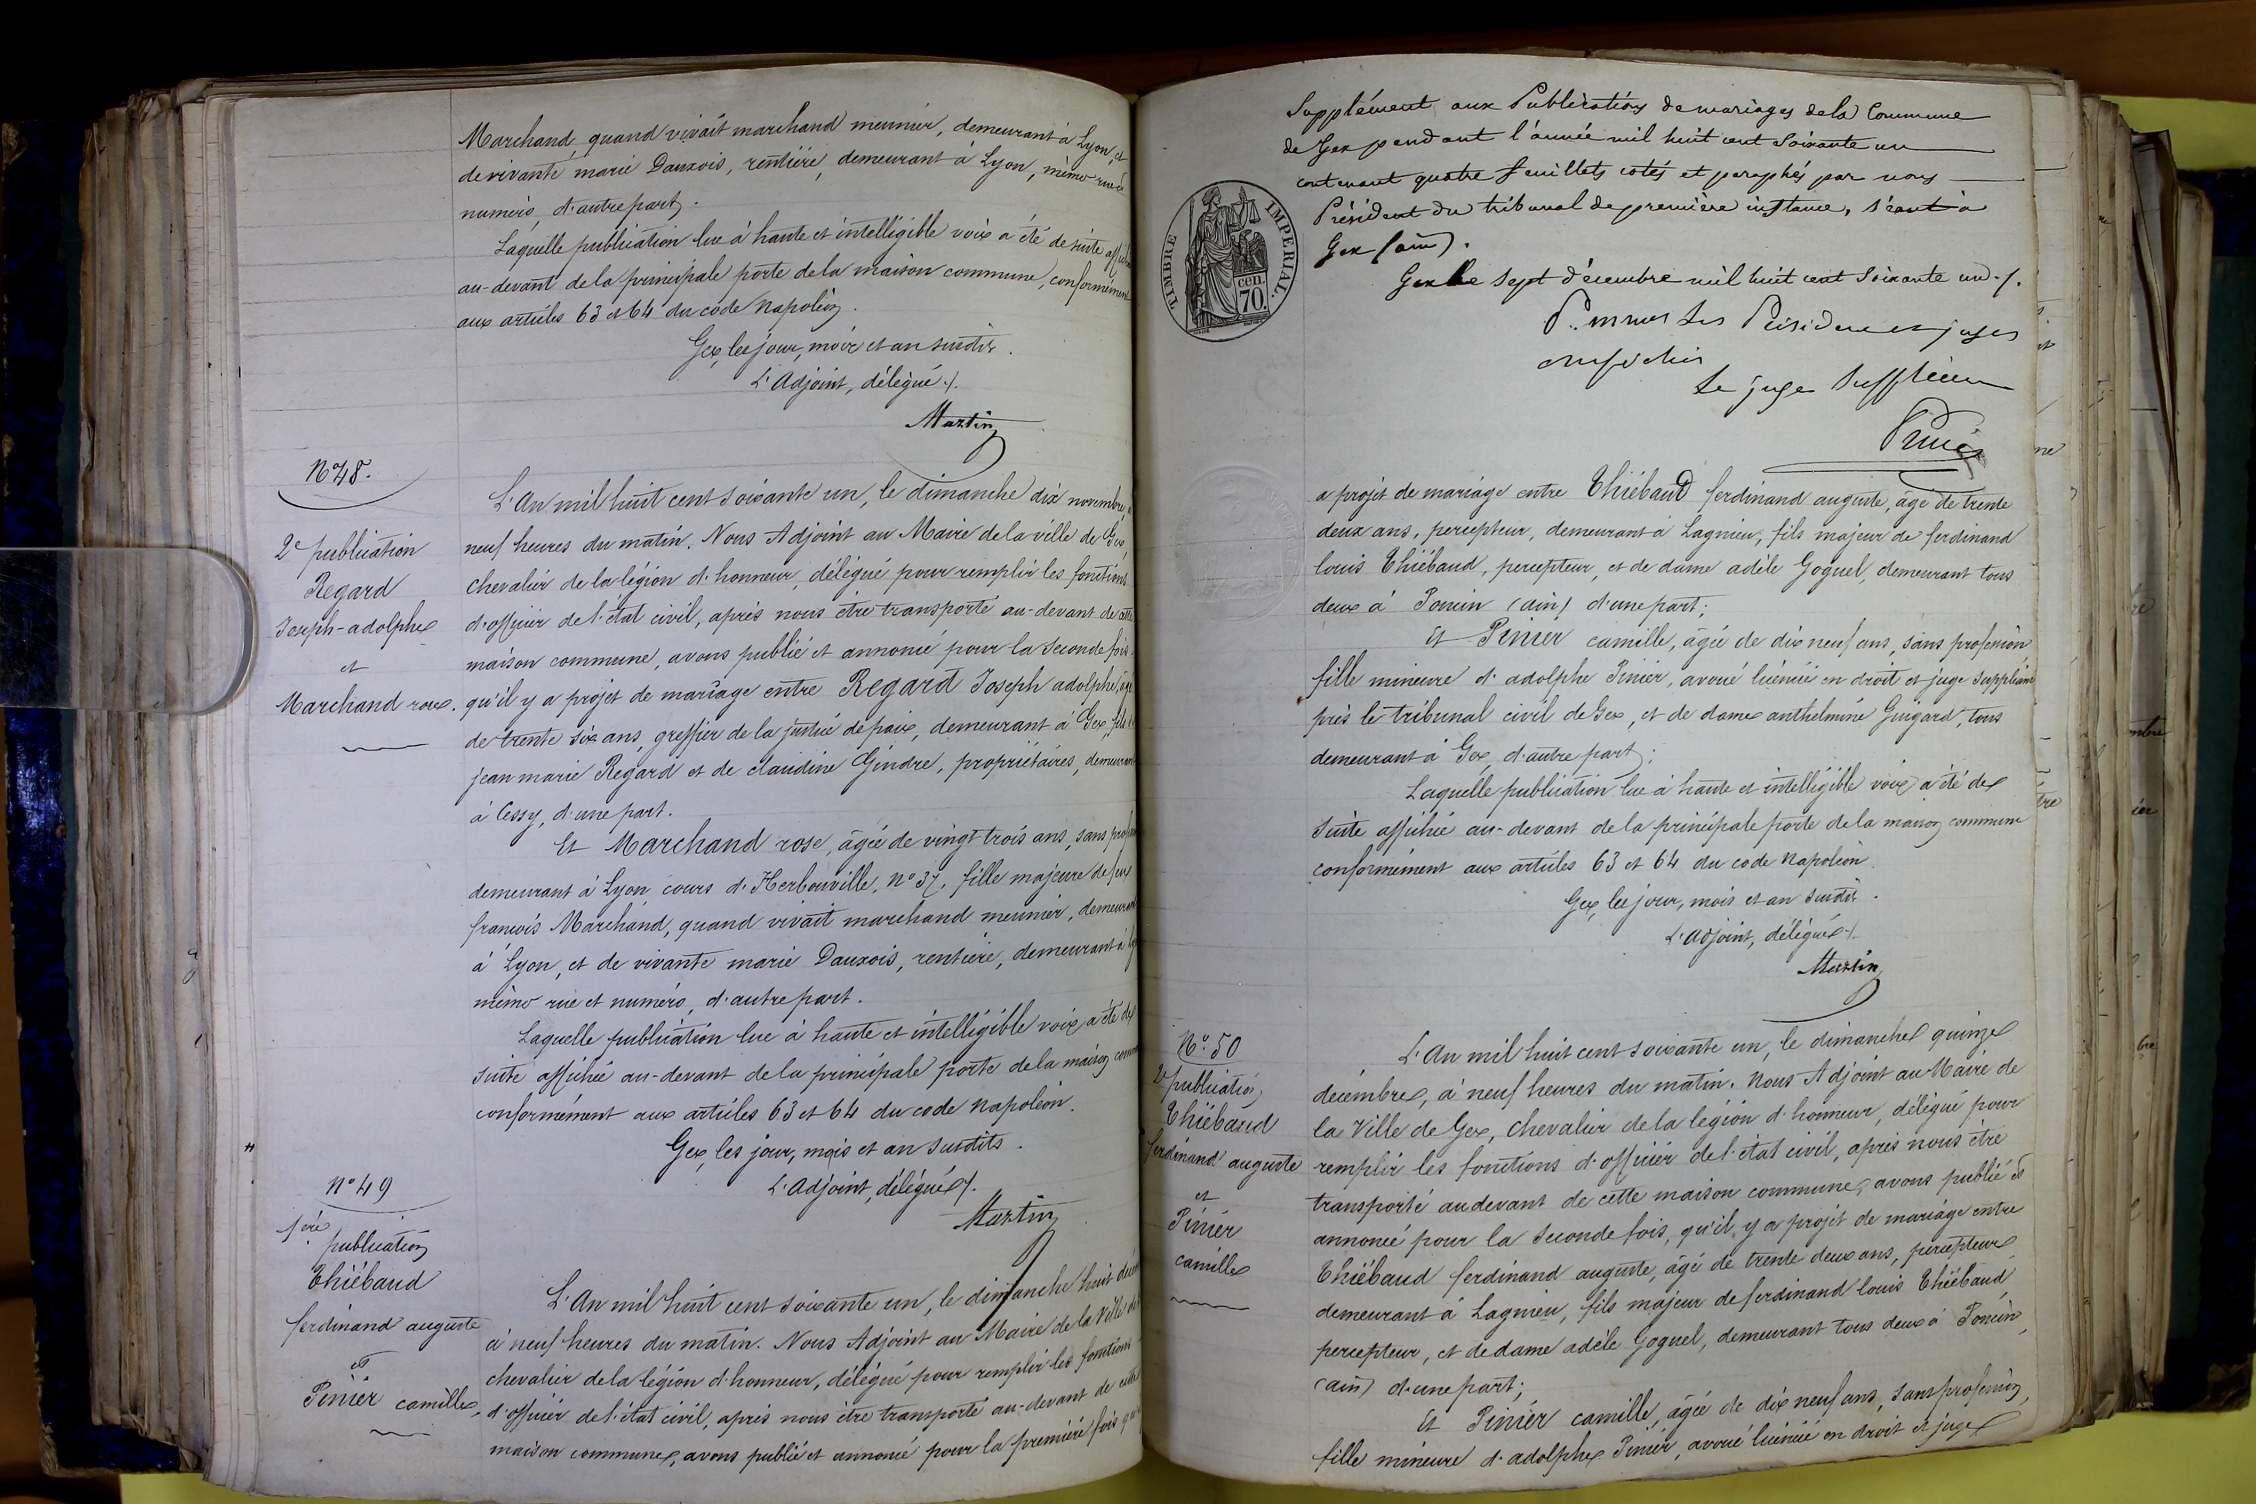 Marchand, quand vivait marchand meunier, demeurant à Lyon, et
de vivante marie Dauxois, rentière, demeurant à Lyon, même rue et
numéro, d'autre part.
Laquelle publication lue à haute et intelligible voix a été de suite
au-devant de la principale porte de la maison commune, conformément
aux articles 63 et 64 du code Napoléon.
Gex, les jour, mois et an susdits.
L'Adjoint, délégué./.
Martin
N° 48.
2e publication
Regard
Joseph-adolphe
et
Marchand rose.
L'An mil huit cent soixante un, le dimanche dix novembre, à
neuf heures du matin. Nous Adjoint au Maire de la ville de Gex,
chevalier de la légion d'honneur, délégué pour remplir les fonctions
d'officier de l'état civil, après nous être transporté au-devant de cette
maison commune, avons publié et annoncé pour la seconde fois
qu'il y a projet de mariage entre Regard Joseph adolphe, âgé
de trente six ans, greffier de la justice de paix, demeurant à Gex, fils de
jean marie Regard et de claudine Gindre, propriétaires, demeurant
à Cessy, d'une part.
Et Marchand rose, âgée de vingt trois ans, sans
demeurant à Lyon, cours d'Herbouville, n° 37, fille majeure de feu
françois Marchand, quand vivait marchand meunier, demeurant
à Lyon, et de vivante marie Dauxois, rentière, demeurant à
même rue et numéro, d'autre part.
Laquelle publication lue à haute et intelligible voix a été de
suite affichée au-devant de la principale porte de la maison
conformément aux articles 63 et 64 du code Napoléon.
Gex, les jour, mois et an susdits.
L'Adjoint, délégué./.
Martin
n° 49
1ere publication
Thiébaud
ferdinand auguste
et
Pinier camille,
L'An mil huit cent soixante un, le dimanche huit
à neuf heures du matin. Nous Adjoint au Maire de la Ville de
chevalier de la légion d'honneur, délégué pour remplir les fonctions
d'officier de l'état civil, après nous être transporté au-devant de cette
maison commune, avons publié et annoncé pour la première fois
Supplément aux Publications de mariages de la Commune
de Gex pendant l'année mil huit cent soixante un
contenant quatre feuillets cotés et paraphés par nous
Président du tribunal de première instance, séant à
Gex (ain).
Gex le sept décembre mil huit cent soixante un./.
P. nous les Président et juges
empêchés
Le juge Suppléant
Pinier
TIMBRE IMPERIAL.
CEN. 70.
a projet de mariage entre Thiébaud ferdinand auguste, âgé de trente
deux ans, percepteur, demeurant à Lagnieu, fils majeur de ferdinand
louis Thiébaud, percepteur, et de dame adèle Goguel, demeurant tous
deux à Poncin (ain) d'une part;
Et Pinier camille, âgée de dix neuf ans, sans profession
fille mineure d'adolphe Pinier, avoué licencié en droit et juge suppléant
près le tribunal civil de Gex, et de dame anthelmine Guigard, tous
demeurant à Gex, d'autre part;
Laquelle publication lue à haute et intelligible voix a été de
suite affichée au-devant de la principale porte de la maison commune
conformément aux articles 63 et 64 du code Napoléon.
Gex, les jour, mois et an susdits.
L'adjoint, délégué./.
Martin
N° 50
2e publication
Thiébaud
ferdinand auguste
et
Pinier
camille
L'An mil huit cent soixante un, le dimanche quinze
décembre, à neuf heures du matin. Nous Adjoint au Maire de
la Ville de Gex, chevalier de la légion d'honneur, délégué pour
remplir les fonctions d'officier de l'état civil, après nous être
transporté au devant de cette maison commune, avons publié et
annoncé pour la seconde fois, qu'il y a projet de mariage entre
Thiébaud ferdinand auguste, âgé de trente deux ans, percepteur
demeurant à Lagnieu, fils majeur de ferdinand louis Thiébaud,
percepteur, et de dame adèle Goguel, demeurant tous deux à Poncin,
(ain) d'une part;
Et Pinier camille, âgée de dix neuf ans, sans profession,
fille mineure d'adolphe Pinier, avoué licencié en droit et juge